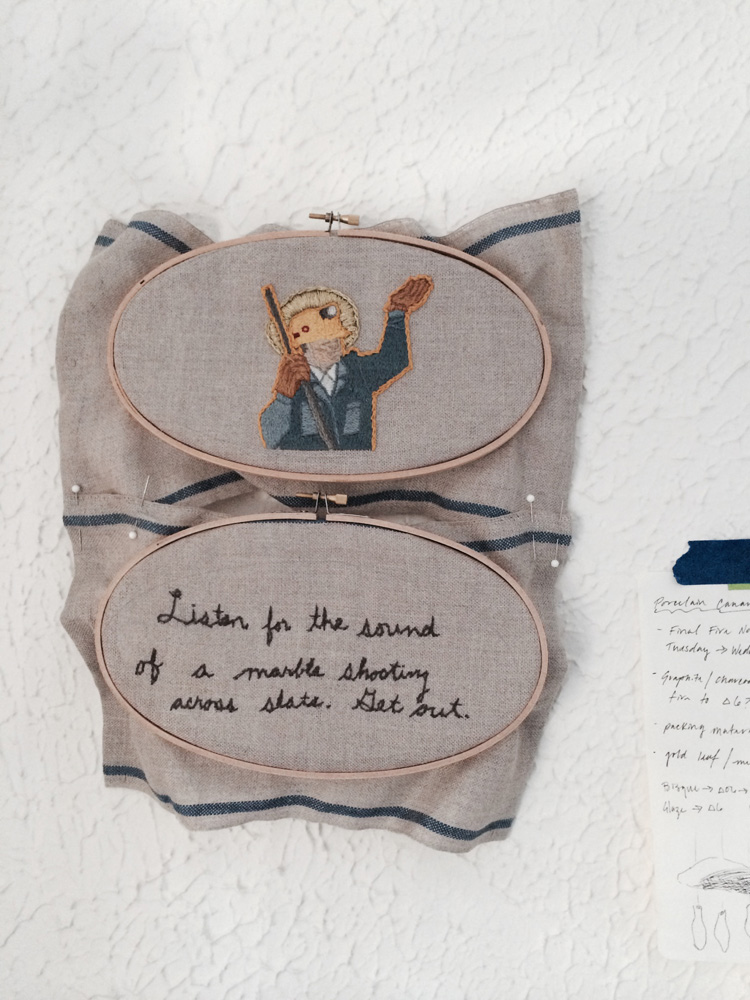 Listen for the sound
of a marble shooting
across slate. Get out.
Porcelain Canar
- Final Fire No
Tuesday → Wed
- Graphite / charcoa
fire to Δ6
- packing mater
- gold leaf / m
Bisque → Δ06 →
Glaze → Δ6